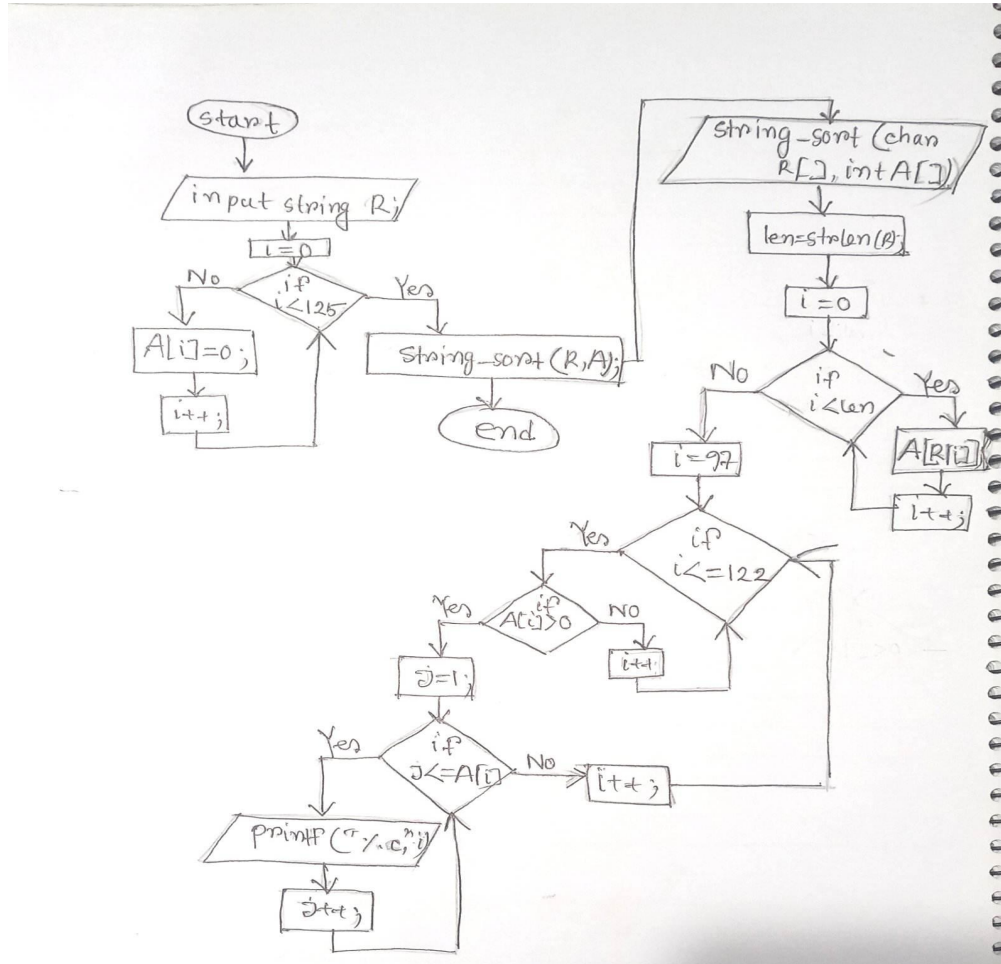 start
input string R;
i=0
if
i<125
No
Yes
A[i]=0;
i++;
string_sort(R,A);
end
string_sort (char
R[], int A[])
len=strlen(R);
i=0
if
i<len
No
Yes
A[R[i]]
i++;
i=97
if
i<=122
Yes
if
A[i]>0
Yes
NO
i++
j=1;
if
j<=A[i]
Yes
NO
i++;
printf("%c,"i)
j++;